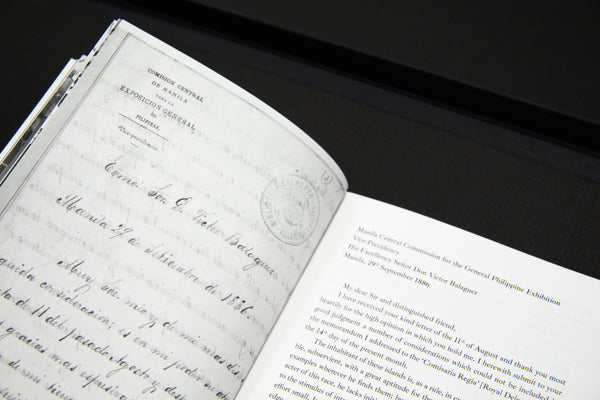 COMISION CENTRAL
DE MANILA
PARA LA
EXPOSICION GENERAL
DE
FILIPINAS.
Vice-presidencia.
Excmo. Sor. D. Victor Balaguer
Manila 29 de Setiembre de 1886.
Muy Sor. mio y de mi mas dis
consideracion; es en mi poder s
ta de 11 del pasado Agosto y desp
gracias mas expresi
Manila Central Commission for the General Philippine Exhibition
Vice-Presidency
His Excellency Señor Don Victor Balaguer
Manila, 29th September 1886
My dear Sir and distinguished friend,
I have received your kind letter of the 11th of August and thank you most
heartily for the high opinion in which you hold me. I herewith submit to your
good judgment a number of considerations which could not be included
the memorandum I addressed to the 'Comisaria Regia' [Royal Dele
the 14th day of the present month.
The inhabitant of these islands is, as a rule, in e
ble, subservient, with a great aptitude for the
examples wherever he finds them; bu
acter of this race, he lacks initi
to the stimulus of inter
effort small. I
edge